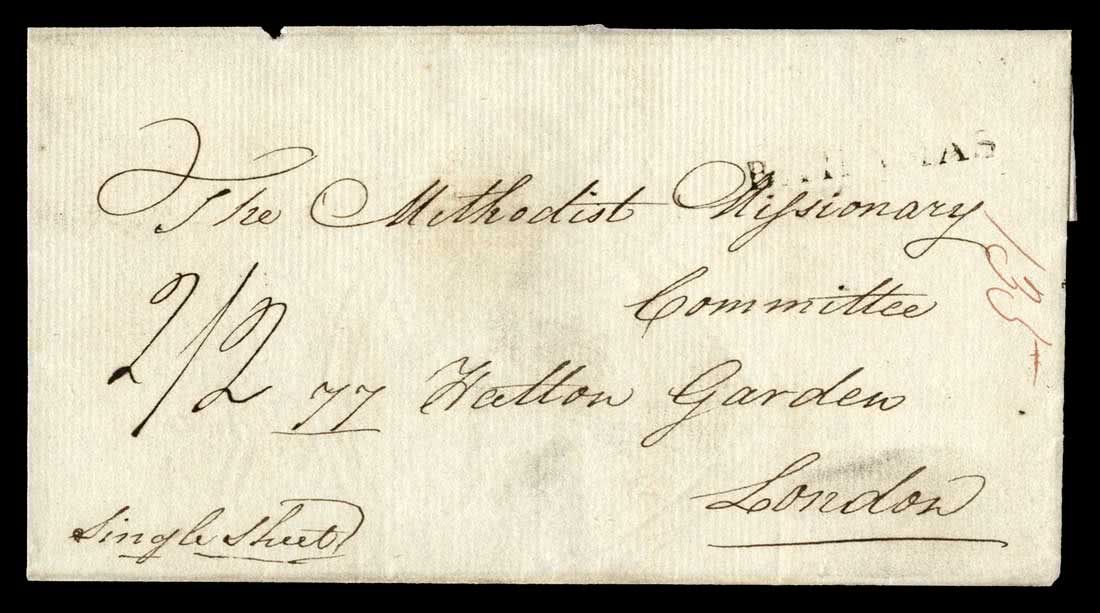 BAHAMAS
The Methodist Missionary
Committee
2/2 77 Hatton Garden
London
Single Sheet